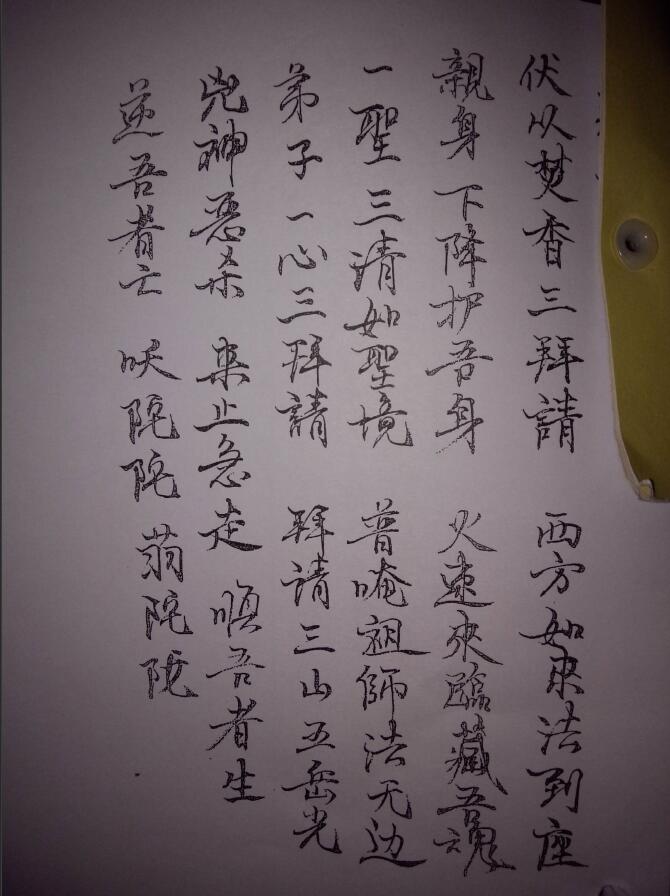 伏以焚香三拜請 西方如来法到座
親身下降护吾身 火速來臨藏吾魂
一聖三清如聖境 普唵祖師法无边
弟子一心三拜請 拜请三山五岳光
兇神惡杀 来止急走 順吾者生
逆吾者亡 吠陀陀 蒻陀陀